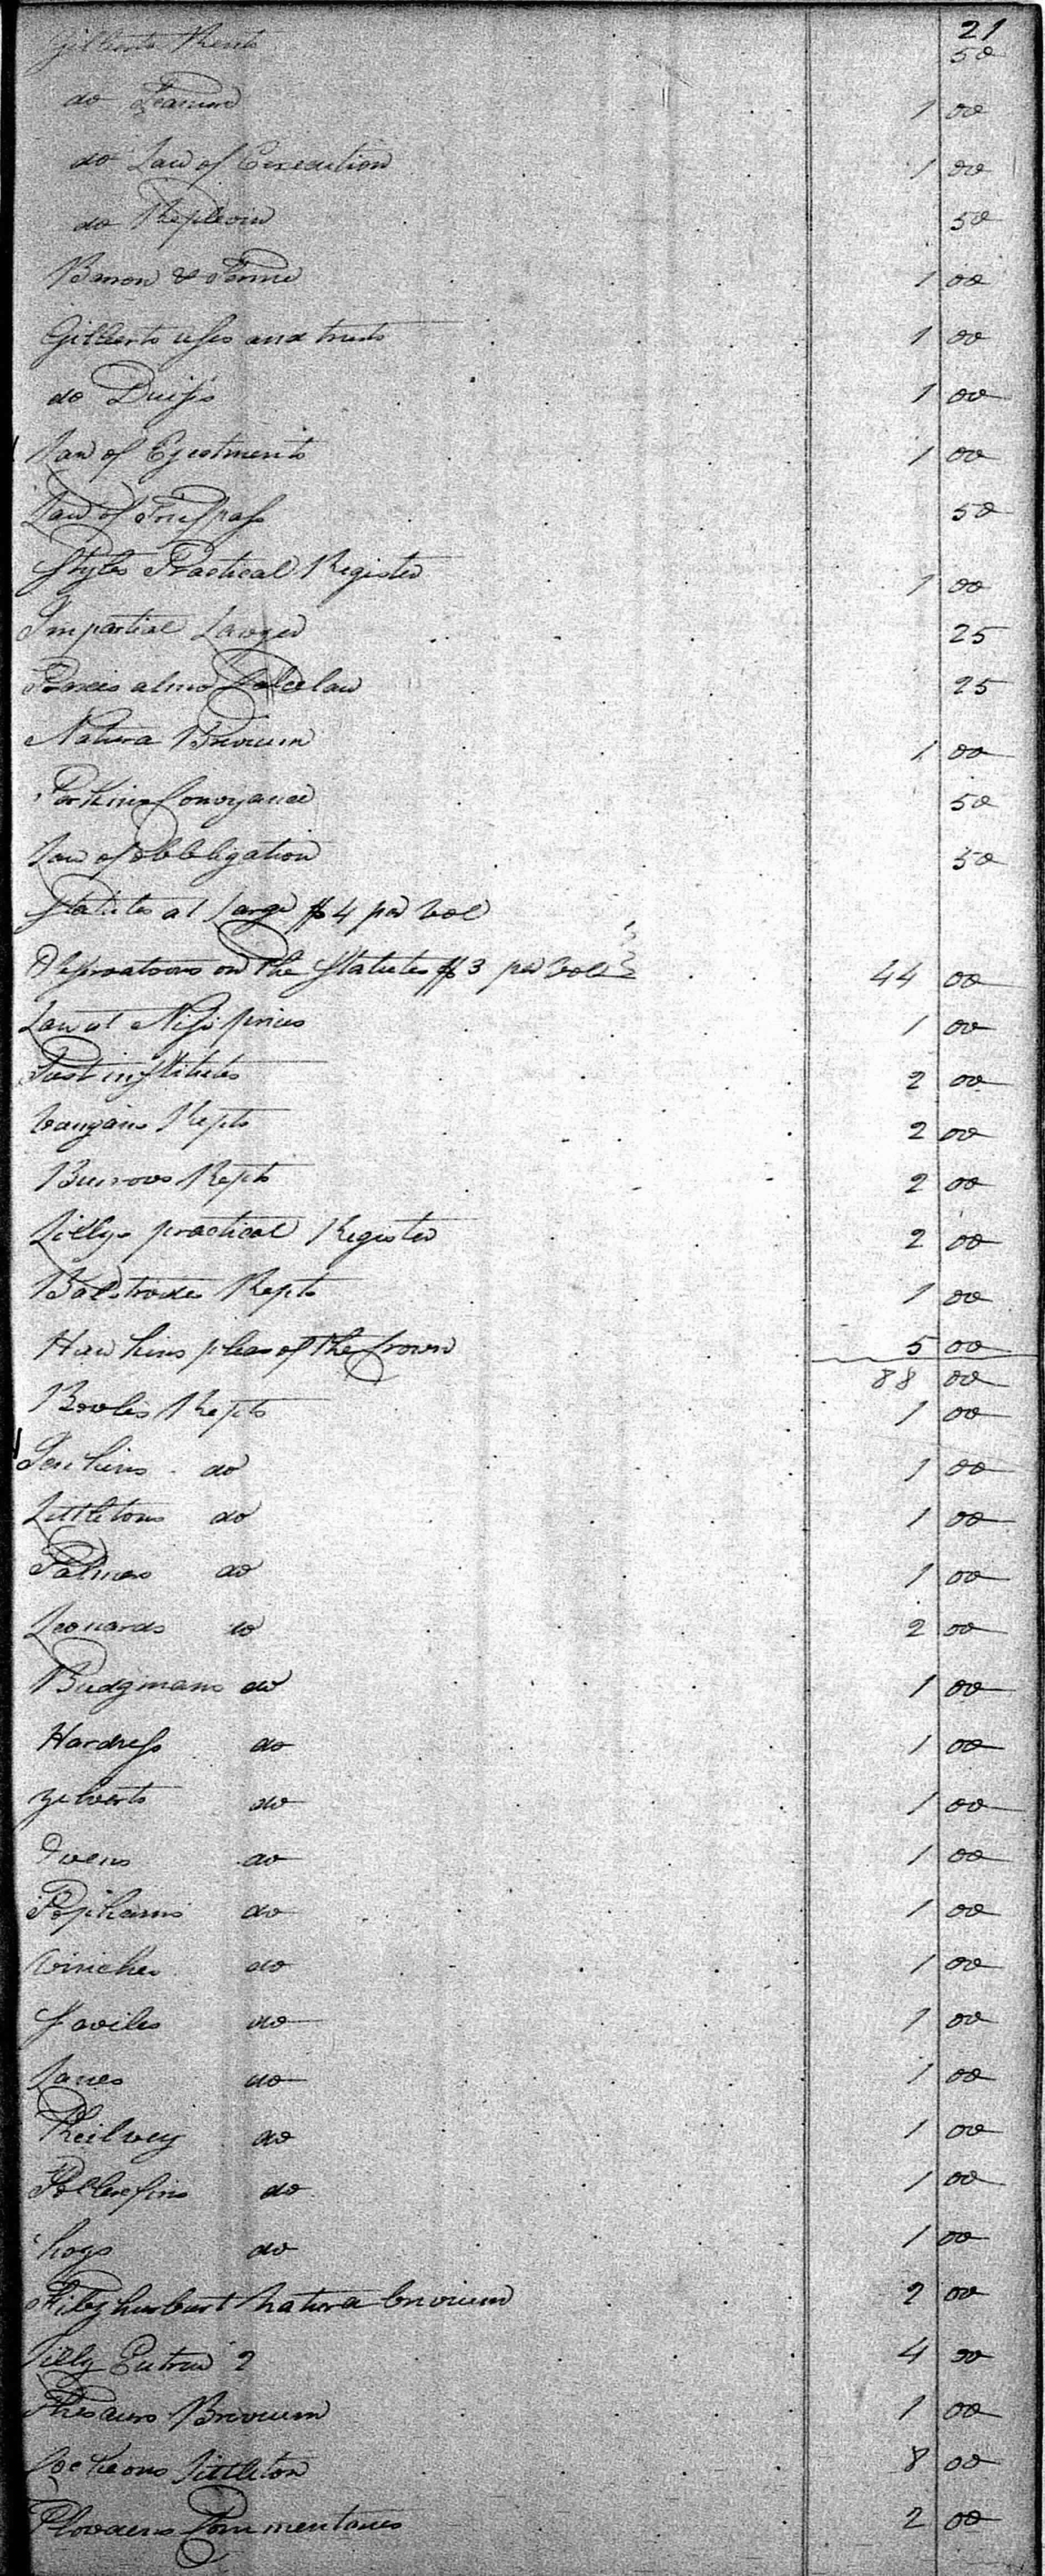 21
Gilberts Rents 50
do Tenures 1 00
do Law of Execution 1 00
do Replevin 50
Baron & Feme 1 00
Gilberts uses and trusts 1 00
do Devises 1 00
Law of Ejectments 1 00
Law of Trespass 50
Styles Practical Register 1 00
Impartial Lawyer 25
25
Natura Brevium 1 00
Perkins Conveyance 50
Law of Obbligation 50
Statutes at Large $4 per vol
Observations on the Statutes $3 per vol 44 00
Law at Nisi prius 1 00
institutes 2 00
Vaugans Repts 2 00
Burrows Repts 2 00
Lillys practical Register 2 00
Balstrodes Repts 1 00
Hawkins pleas of the Crown 5 00
88 00
Rolles Repts 1 00
Jenkins do 1 00
Littletons do 1 00
Palmers do 1 00
Leonards do 2 00
Bridgmans do 1 00
Hardress do 1 00
Yelverts do 1 00
Owens do 1 00
Pophams do 1 00
Winches do 1 00
Saviles do 1 00
Lanes do 1 00
Keilwey do 1 00
Pollexfins do 1 00
do 1 00
natura brevium 2 00
Lilly Entries 2 4 00
Thesaurs Brevium 1 00
Littleton 8 00
Plowdens Commentaries 2 00